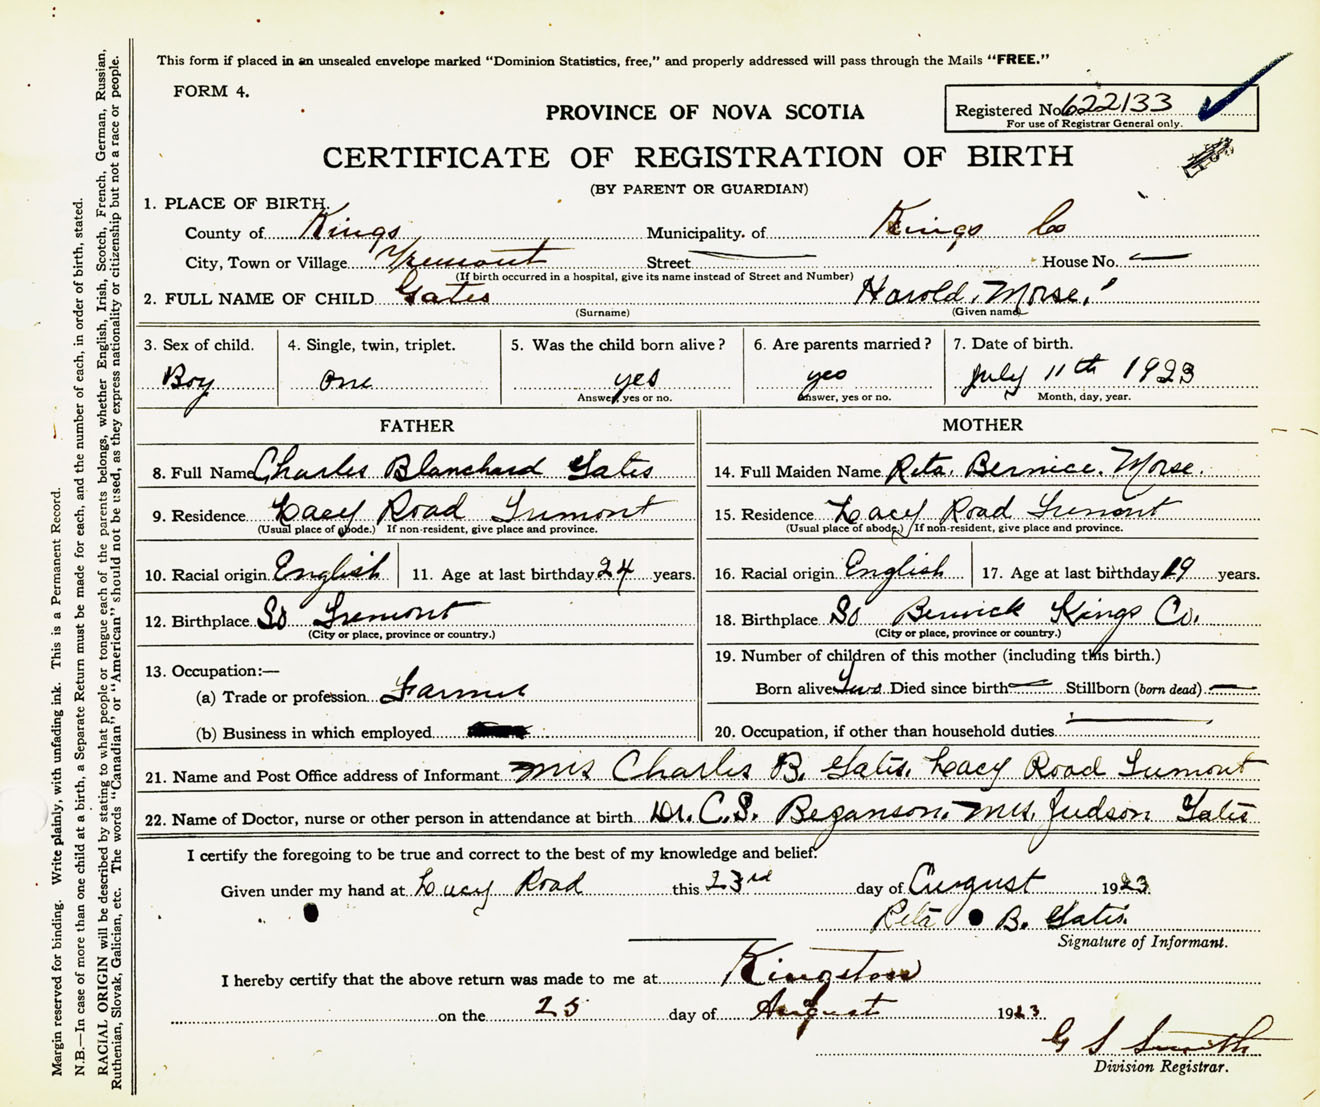 This form if placed in an unsealed envelope marked "Dominion Statistics, free," and properly addressed will pass through the Mails "FREE."
FORM 4.
PROVINCE OF NOVA SCOTIA
Registered No. 622133
For use of Registrar General only.
CERTIFICATE OF REGISTRATION OF BIRTH
(BY PARENT OR GUARDIAN)
1. PLACE OF BIRTH.
County of Kings Municipality of Kings Co
City, Town or Village Tremont Street — House No. —
(If birth occurred in a hospital, give its name instead of Street and Number)
2. FULL NAME OF CHILD Gates Harold, Morse.
(Surname) (Given name)
3. Sex of child. 4. Single, twin, triplet. 5. Was the child born alive? 6. Are parents married? 7. Date of birth.
Boy one yes yes July 11th 1923
Answer, yes or no. Answer, yes or no. Month, day, year.
FATHER MOTHER
8. Full Name Charles Blanchard Gates 14. Full Maiden Name Reta. Bernice. Morse.
9. Residence Lacy Road Tremont 15. Residence Lacy Road Tremont
(Usual place of abode.) If non-resident, give place and province. (Usual place of abode.) If non-resident, give place and province.
10. Racial origin English 11. Age at last birthday 24 years. 16. Racial origin English 17. Age at last birthday 19 years.
12. Birthplace So Tremont 18. Birthplace So Berwick Kings Co.
(City or place, province or country.) (City or place, province or country.)
19. Number of children of this mother (including this birth.)
13. Occupation:—
(a) Trade or profession Farmer Born alive Two Died since birth — Stillborn (born dead) —
(b) Business in which employed 20. Occupation, if other than household duties —
21. Name and Post Office address of Informant Mrs Charles B. Gates. Lacy Road Tremont
22. Name of Doctor, nurse or other person in attendance at birth Dr. C.S. Bezanson. Mrs. Judson Gates
I certify the foregoing to be true and correct to the best of my knowledge and belief.
Given under my hand at Lacy Road this 23rd day of August 1923.
Reta B. Gates.
Signature of Informant.
I hereby certify that the above return was made to me at Kingston
on the 25 day of August 1923
G S Smith
Division Registrar.
Margin reserved for binding. Write plainly, with unfading ink. This is a Permanent Record.
N.B.—In case of more than one child at a birth, a Separate Return must be made for each, and the number of each, in order of birth, stated.
RACIAL ORIGIN will be described by stating to what people or tongue each of the parents belongs, whether English, Irish, Scotch, French, German, Russian,
Ruthenian, Slovak, Galician, etc. The words "Canadian" or "American" should not be used, as they express nationality or citizenship but not a race or people.